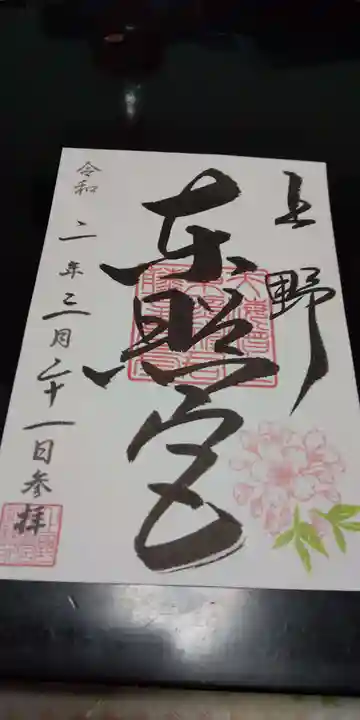 上野
東照宮
令和二年三月二十一日参拝